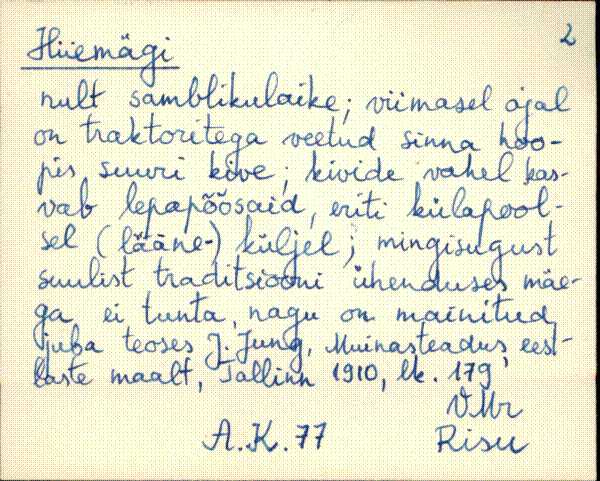 Hiiemägi 2
nult samblikulaike; viimasel ajal
on traktoritega veetud sinna hoo-
pis suuri kive; kivide vahel kas-
vab lepapõõsaid, eriti külapool-
sel (lääne-) küljel; mingisugust
suulist traditsiooni ühenduses mäe-
ga ei tunta, nagu on mainitud
juba teoses J. Jung, Muinasteadus eest-
laste maalt, Tallinn 1910, lk. 179
VMr
A.K.77 Risu